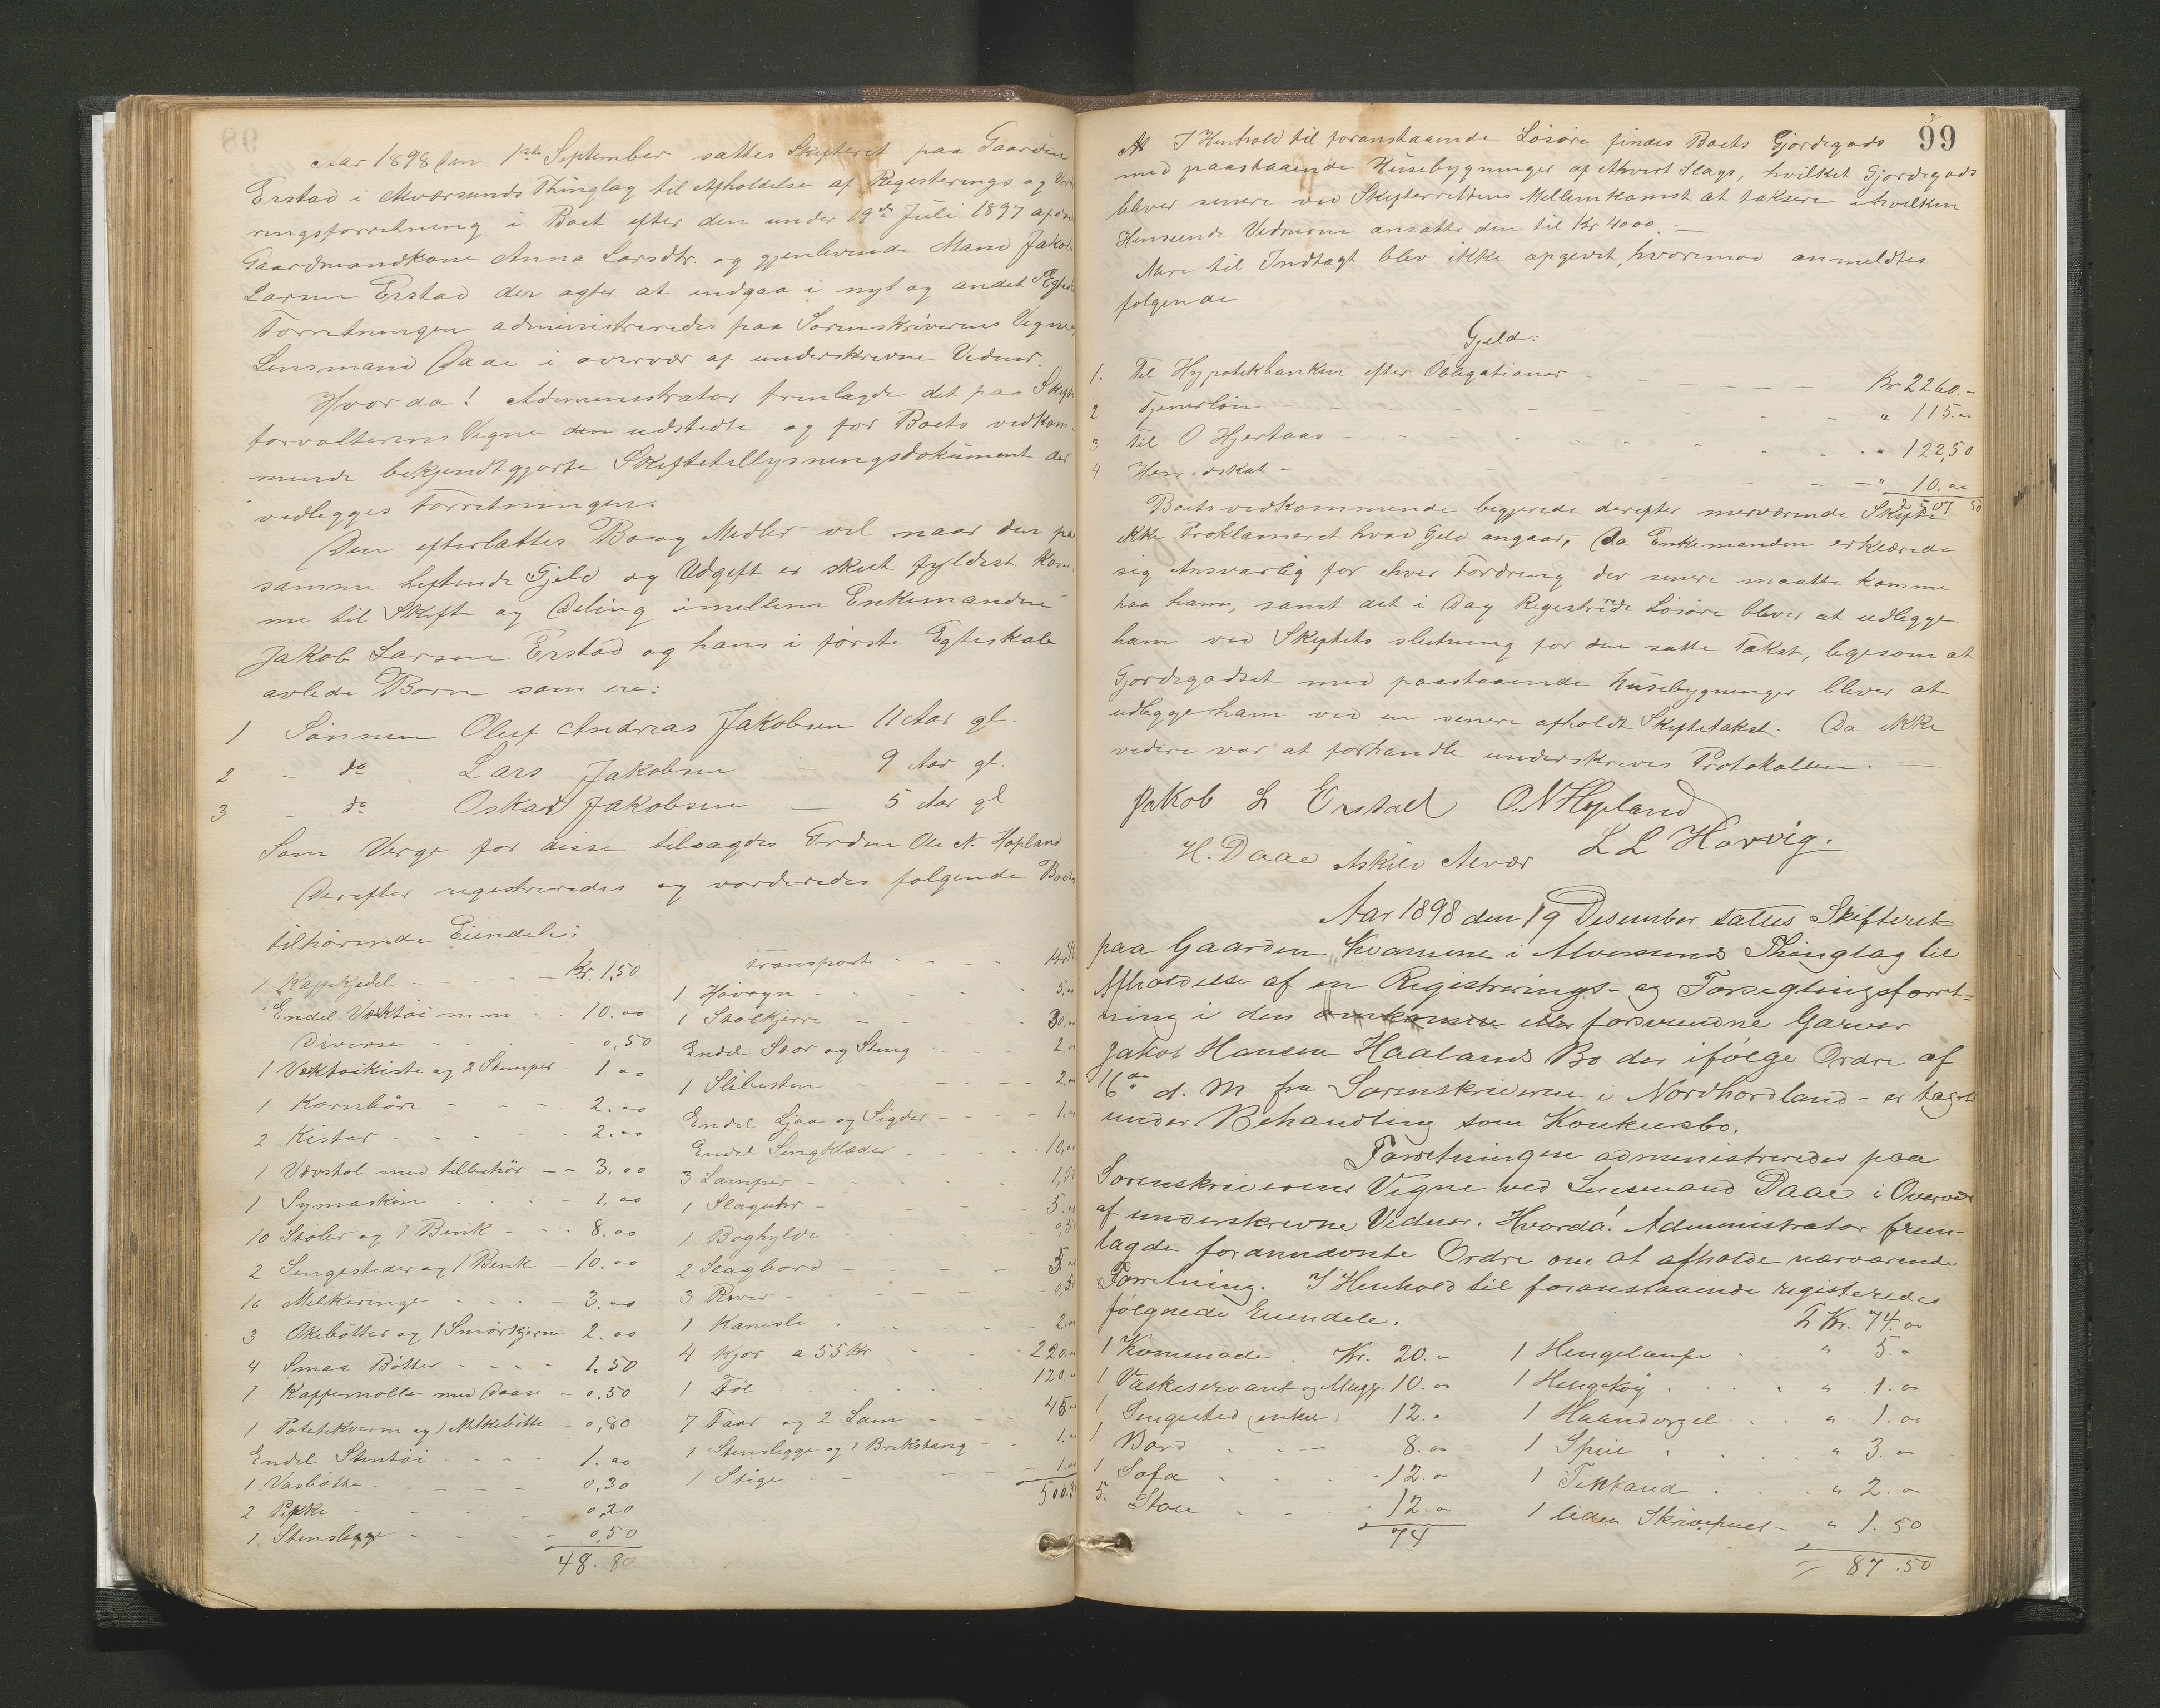 Aar 1898 den 1ste September sattes Skifteret paa Gaarden
Erstad i Alværsunds Thinglag til Afholdelse af Registerings og Vær
ringsforretning i Boet efter den under 19de Juli 1897 afdø
Gaardmandkone Anna Larsdtr. og gjenlevende Mand Jakob
Larsen Erstad der agter at indgaa i nyt og andet Ægte
Forretningen administreredes paa Sorenskriverens Vegne
Lensmand Daae i overvær af underskrevne Vidner.
Hvorda! Administrator fremlagde det paa Skifte
forvalterens Vegne den udstedte og for Boets vedkom-
mende bekjendtgjorte Skiftetillysningsdokument der
vedlegges Forretningen.
Den efterlatte Bo og Midler vil naar den paa
samme heftende Gjeld og Udgift er skeet fyldest kom-
me til Skifte og Deling imellem Enkemanden
Jakob Larsen Erstad og hans i første Egteskab
avlede Børn som ere:
1 Sønnen Oluf Andreas Jakobsen 11 Aar gl.
2 - do Lars Jakobsen - 9 Aar gl.
3 - do Oskar Jakobsen - 5 Aar gl
Som Verge for disse tilsagdes Grdm Ole N. Hopland
Derefter registreredes og vorderedes følgende Boets
tilhørende Eiendele:
1 Kaffekjedel - - - Kr. 1,50
Endel Værktøi m m - - 10.00
Diverse - - - 0,50
1 Værktøikiste og 2 Stamper - 1.00
1 Kornbøre - - - 2.00
2 Kister - - - 2.00
1 Vævstol med tilbehør - - 3.00
1 Symaskin - - 1,00
10 Stoler og 1 Benk - - 8.00
2 Sengesteder og 1 Benk - 10.00
16 Melkeringe - - - 3.00
3 Økebøtter og 1 Smørkjerne 2.00
4 Smaa Bøtter - - - 1.50
1 Kaffemølle med Daase - 0,50
1 Potetekvern og 1 Melkebøtte - 0,80
Endel Stentøi - - - 1.00
1 Vasbøtte - - - 0,30
2 Pikke - - - 0,20
1 Stenslegge - - - 0,50
48.80
Transport - - - Kr
1 Høvogn - - - 5.00
1 Stolkjerre - - - 30.00
Endel Staar og Steng - - 2.00
1 Slibesten - - - 2.00
Endel Ljaa og Sigder - - - 1.00
Endel Sengklæder - - - 10,00
3 Lamper - - - 1,50
1 Slaguhr - - - 5.00
1 Boghylde - - - 0,5
2 Slagbord - - - 5.00
3 River - - - 0,50
1 Kanesle - - - 2.00
4 Kjør a 55 Kr - - 220.00
1 Føl - - - 120.00
7 Faar og 2 Lam - - - 45.00
1 Stenslegge og 1 Brekstang - - 1.00
1 Stige - - - 1.00
500.3
99
At I Henhold til foranstaaende Løsøre findes Boets Gjordegods
med paastaaende Husebygninger af ethvert Slags, hvilket Gjordegods
bliver senere ved Skifterettens Mellemkomst at taksere i hvilken
Henseende Vidnerne ansatte den til Kr 4000. -
Mere til Indtægt blev ikke opgivet, hvorimod anmeldtes
følgende
Gjeld:
1. Til Hypotekbanken efter Obligationer - - - Kr 2260.-
2 Tjenerløn - - - " 115.-
3 Til O Hjertaas - - - " 122,50
4 Herredskat - - - " 10.00
2507 50
Boets vedkommende begjerede derefter nerværende Skifte
ikke Proklameret hvad Gjeld angaar, Da Enkemanden erklærede
sig Ansvarlig for ehver Fordring der senere maatte komme
paa ham, samt det i Dag Registrerede Løsøre bliver at udlegge
ham ved Skiftets slutning for den satte Takst, ligesom at
Gjordegodset med paastaaende husebygninger bliver at
udlegge ham ved en senere afholdt Skiftetakst. Da ikke
videre var at forhandle underskreves Protokollen. -
Jakob L Erstad O.N Hopland
H. Daae Askild Alvær L L Horvig.
Aar 1898 den 19 Desember sattes Skifteret
paa Gaarden Kvamme i Alversunds Thinglag til
Afholdelse af en Registrerings- og Forseglingsforret-
ning i den omkomne eller forsvundne Garver
Jakob Hansen Haalands Bo der ifølge Ordre af
16de d. M fra Sorenskriveren i Nordhordland - er taget
under Behandling som Konkursbo.
Forretningen administreredes paa
Sorenskriverens Vegne ved Lensmand Daae i Overvær
af underskrevne Vidner. Hvorda! Administrator frem-
lagde forannævnte Ordre om at afholde nærværende
Forretning. I Henhold til foranstaaende registeredes
følgnede Eiendele.
1 Kommode . Kr. 20.-
1 Vaskeservant og Mugge. 10.00
1 Sengested (enkel) 12.-
1 Bord . . - 8.00
1 Sofa . . . 12.-
5. Stole . . . 12.00
74
T Kr. 74.00
1 Hengelampe . " 5.-
1 Hengekøj . . . " 1.00
1 Haandorgel . . " 1.00
1 Speil . . . " 3.-
1 Tinkande . . . " 2.-
1 liden Skrivepult - " 1.50
= 87.50